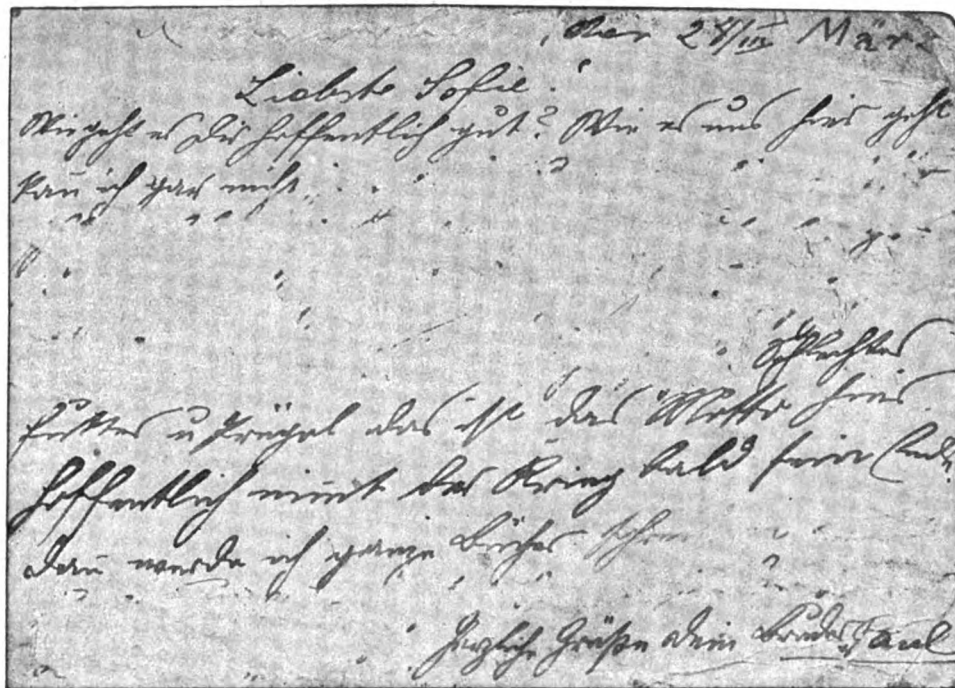 Den 24/III März
Liebste Sofie!
Wie geht es Dir hoffentlich gut? Wie es uns hier geht
kan̄ ich gar nicht
Schlechtes
Futter u Prügel das ist das Motto hier
Hoffentlich nim̄t der Krieg bald sein Ende
dan̄ werde ich ganze Bücher schr
Herzliche Grüße dein Bruder Paul